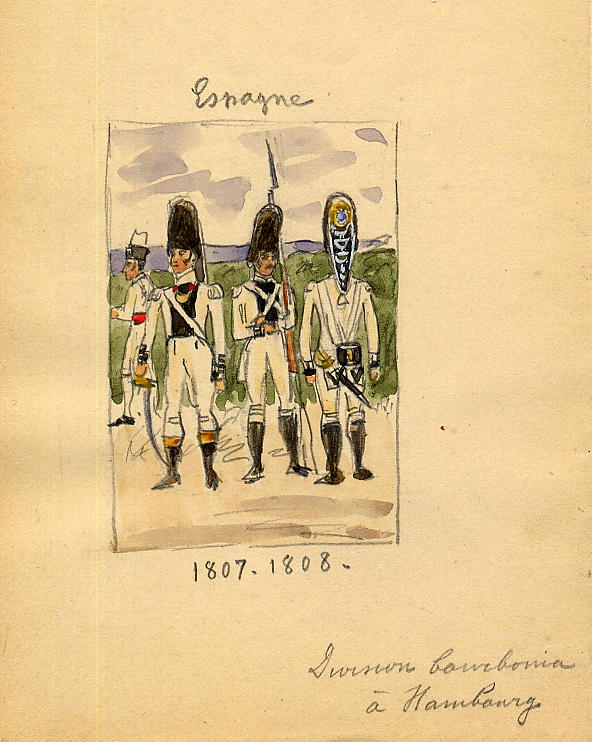 Espagne
1807-1808.
Division bourbonia
à Hambourg